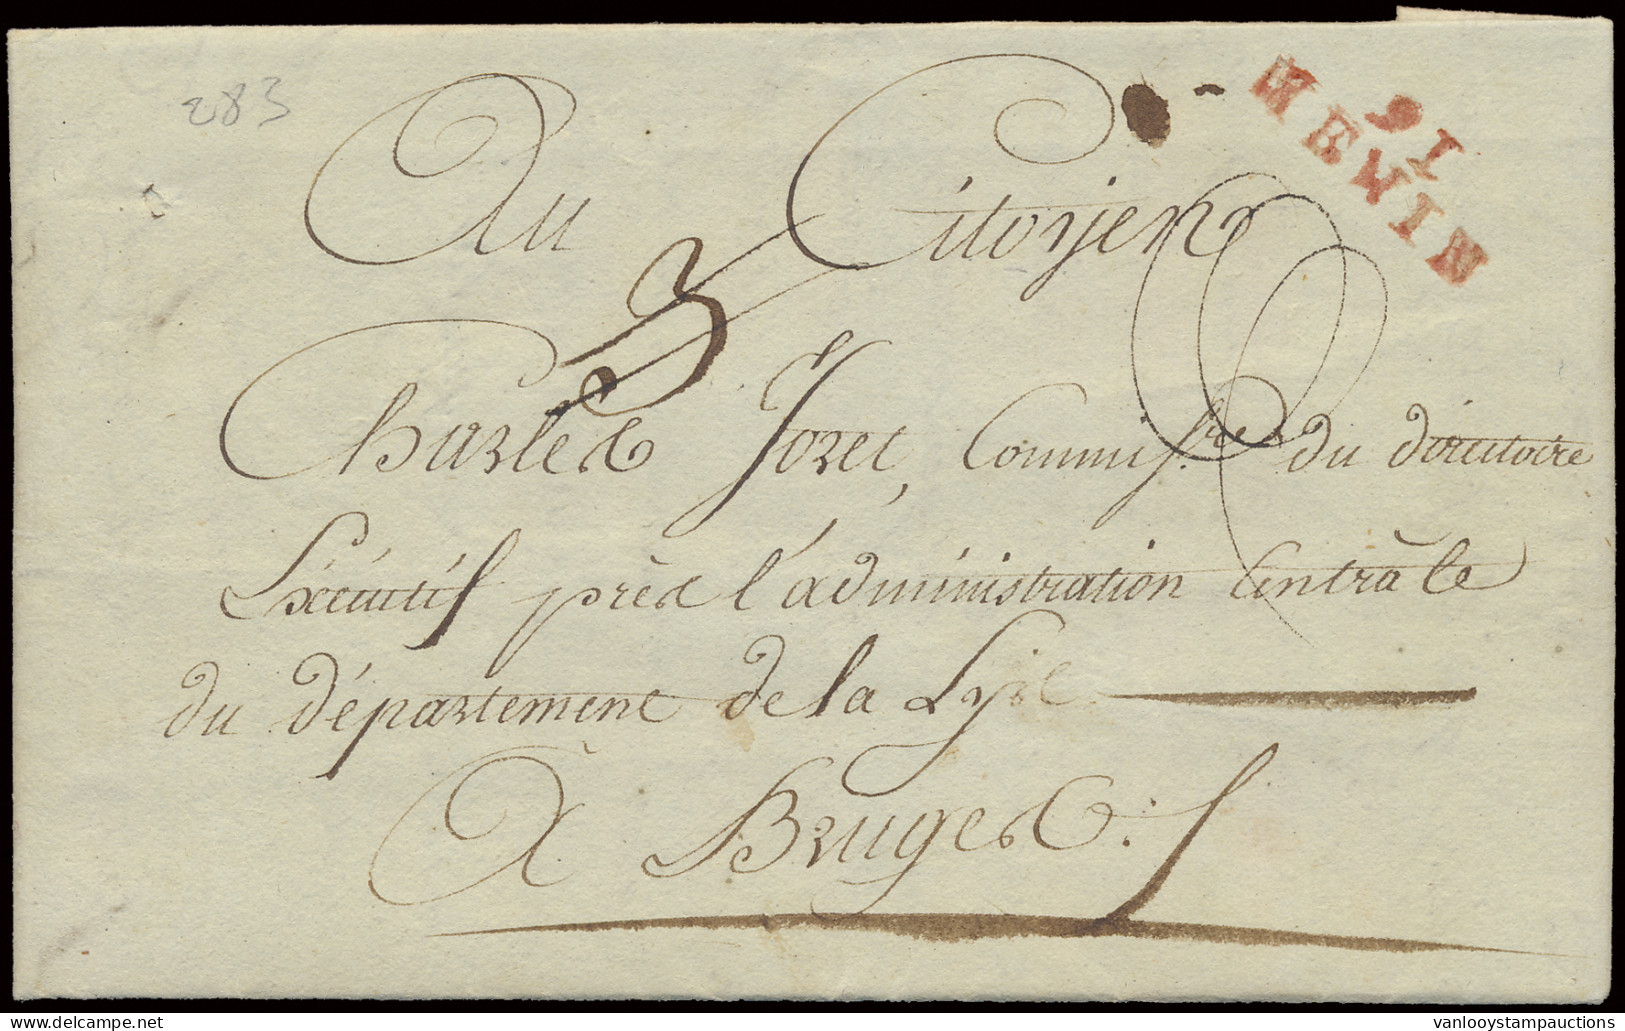 283
91
MENIN
Au Citoyen
3
Charles Joret, Commiss.re du directoire
Exécutif près l'administration Centrale
du département de la Lys
A Bruges
vanlooystampauctions